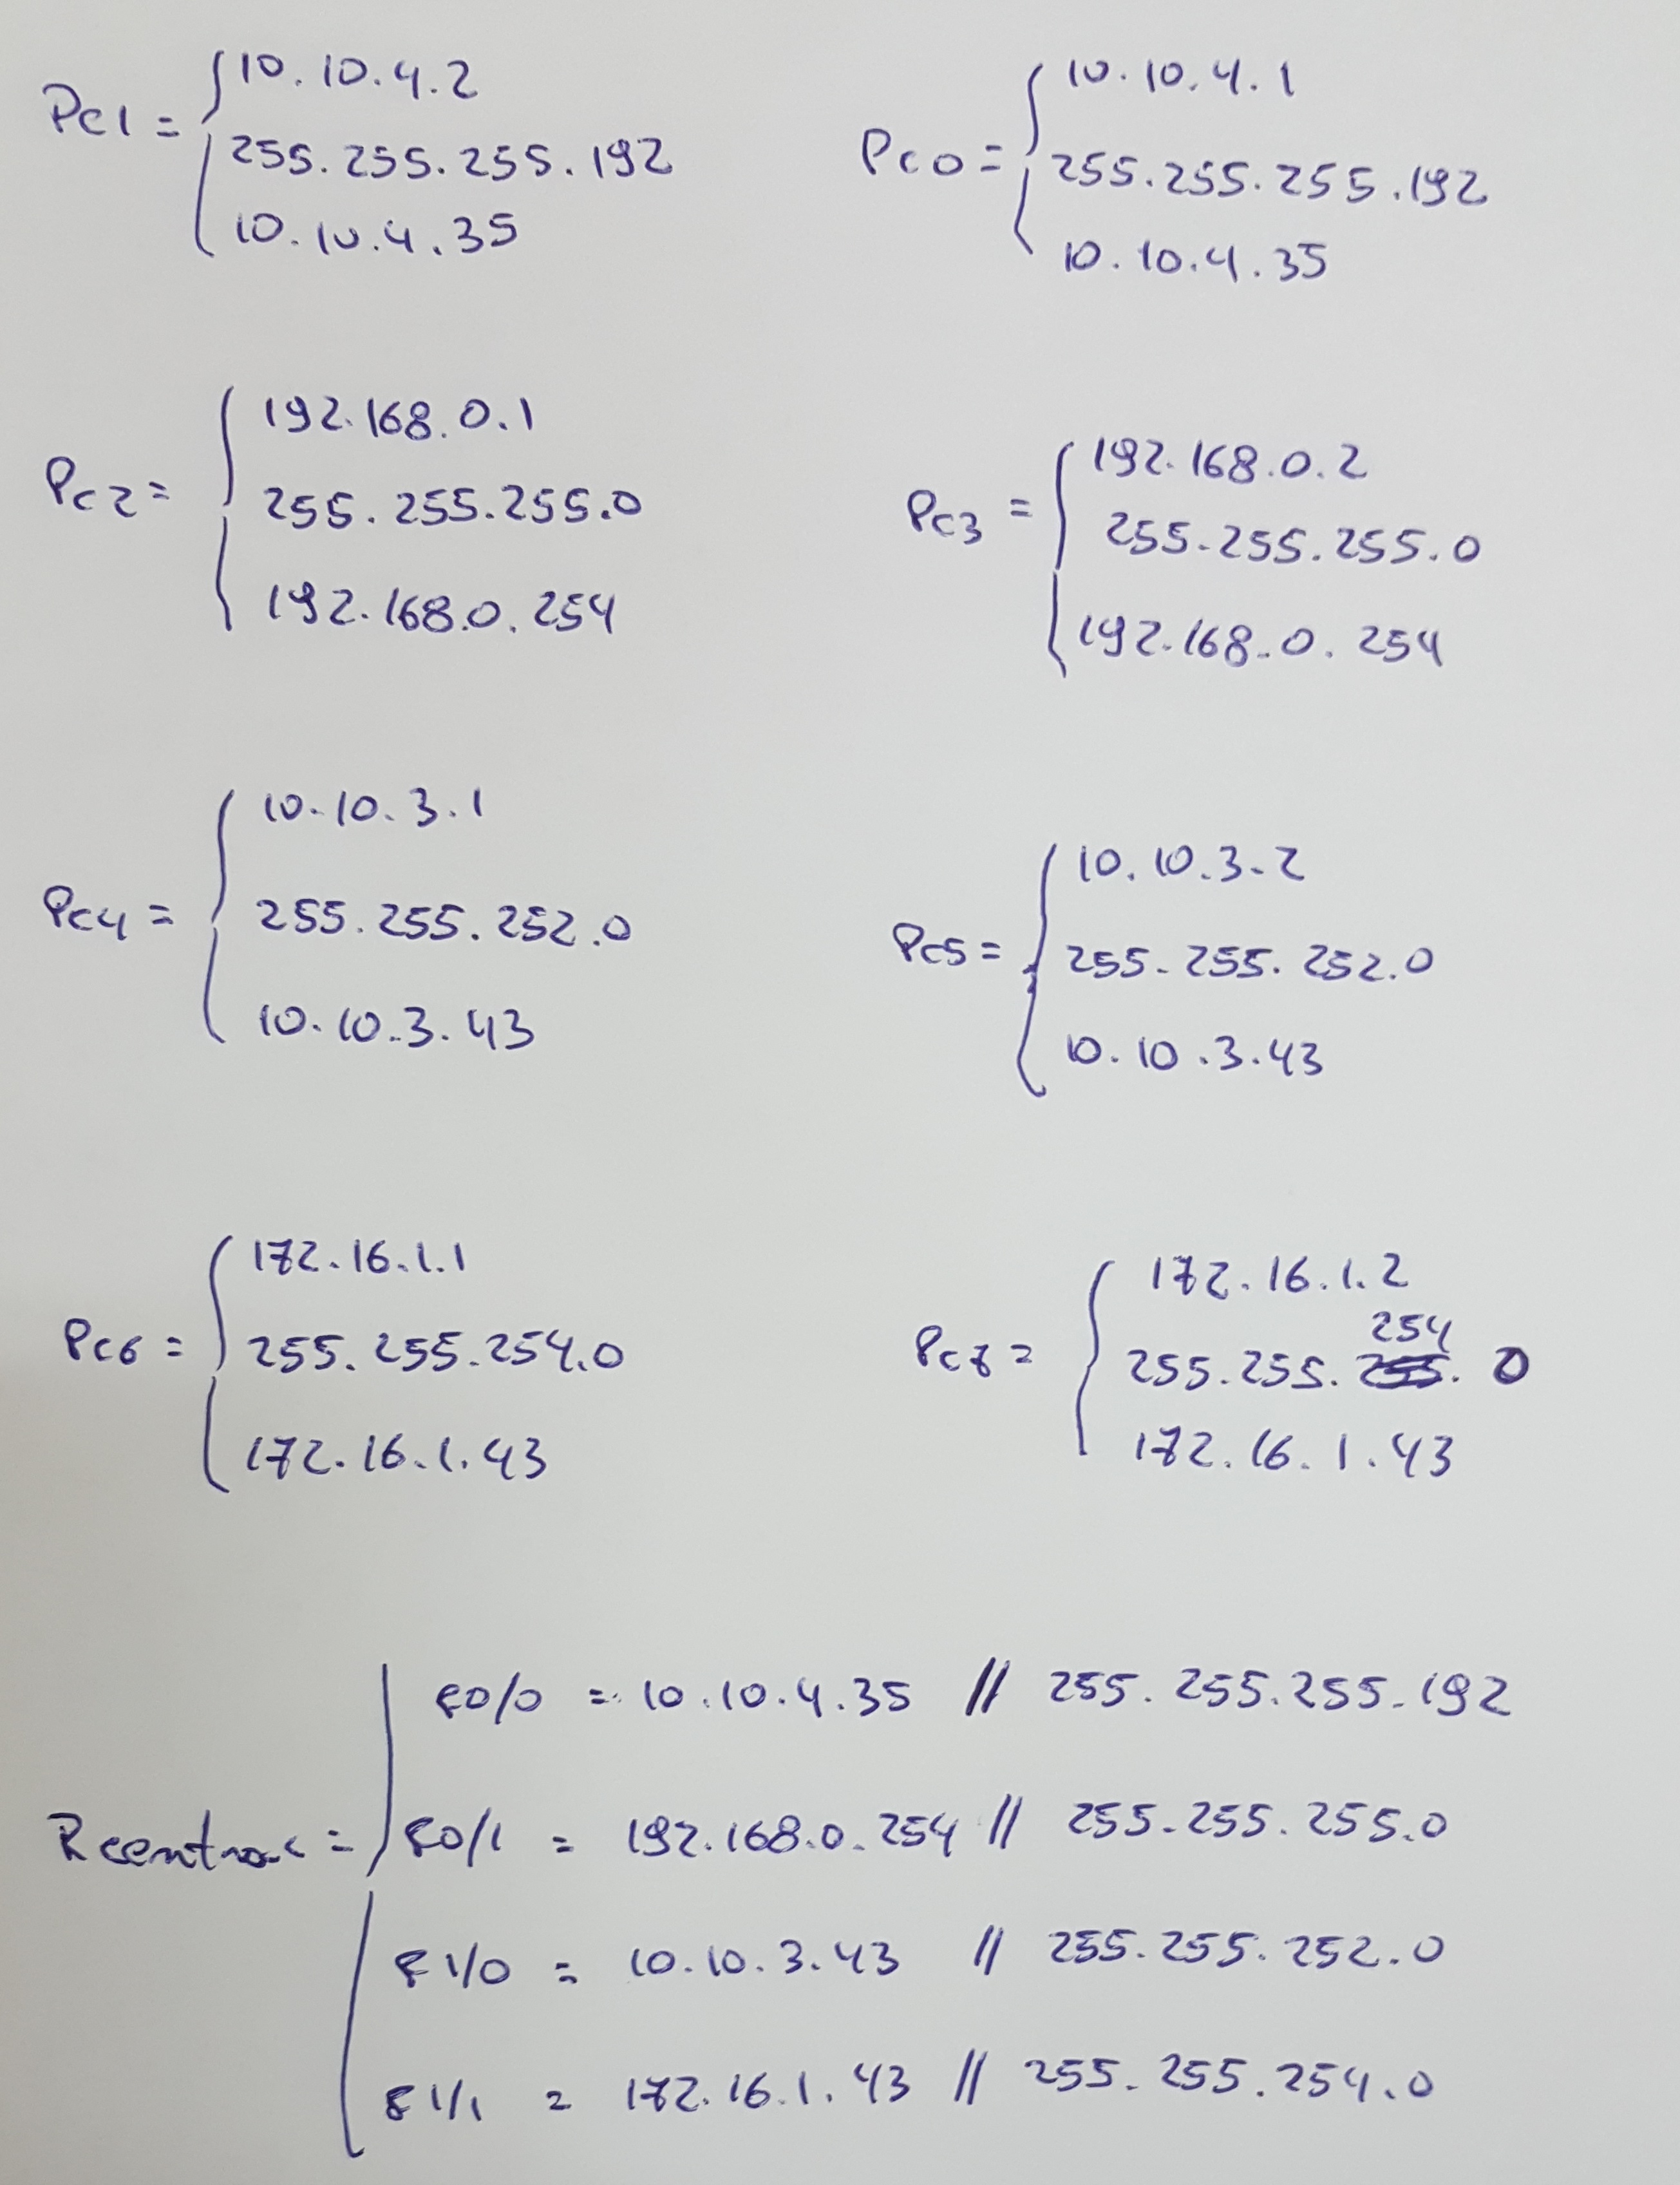 Pc1 = 10.10.4.2
255.255.255.192
10.10.4.35
Pc0 = 10.10.4.1
255.255.255.192
10.10.4.35
Pc2 = 192.168.0.1
255.255.255.0
192.168.0.254
Pc3 = 192.168.0.2
255.255.255.0
192.168.0.254
Pc4 = 10.10.3.1
255.255.252.0
10.10.3.43
Pc5 = 10.10.3.2
255.255.252.0
10.10.3.43
Pc6 = 172.16.1.1
255.255.254.0
172.16.1.43
Pc7 = 172.16.1.2
255.255.254.0
172.16.1.43
Rcentral = f0/0 = 10.10.4.35 // 255.255.255.192
f0/1 = 192.168.0.254 // 255.255.255.0
f1/0 = 10.10.3.43 // 255.255.252.0
f1/1 = 172.16.1.43 // 255.255.254.0